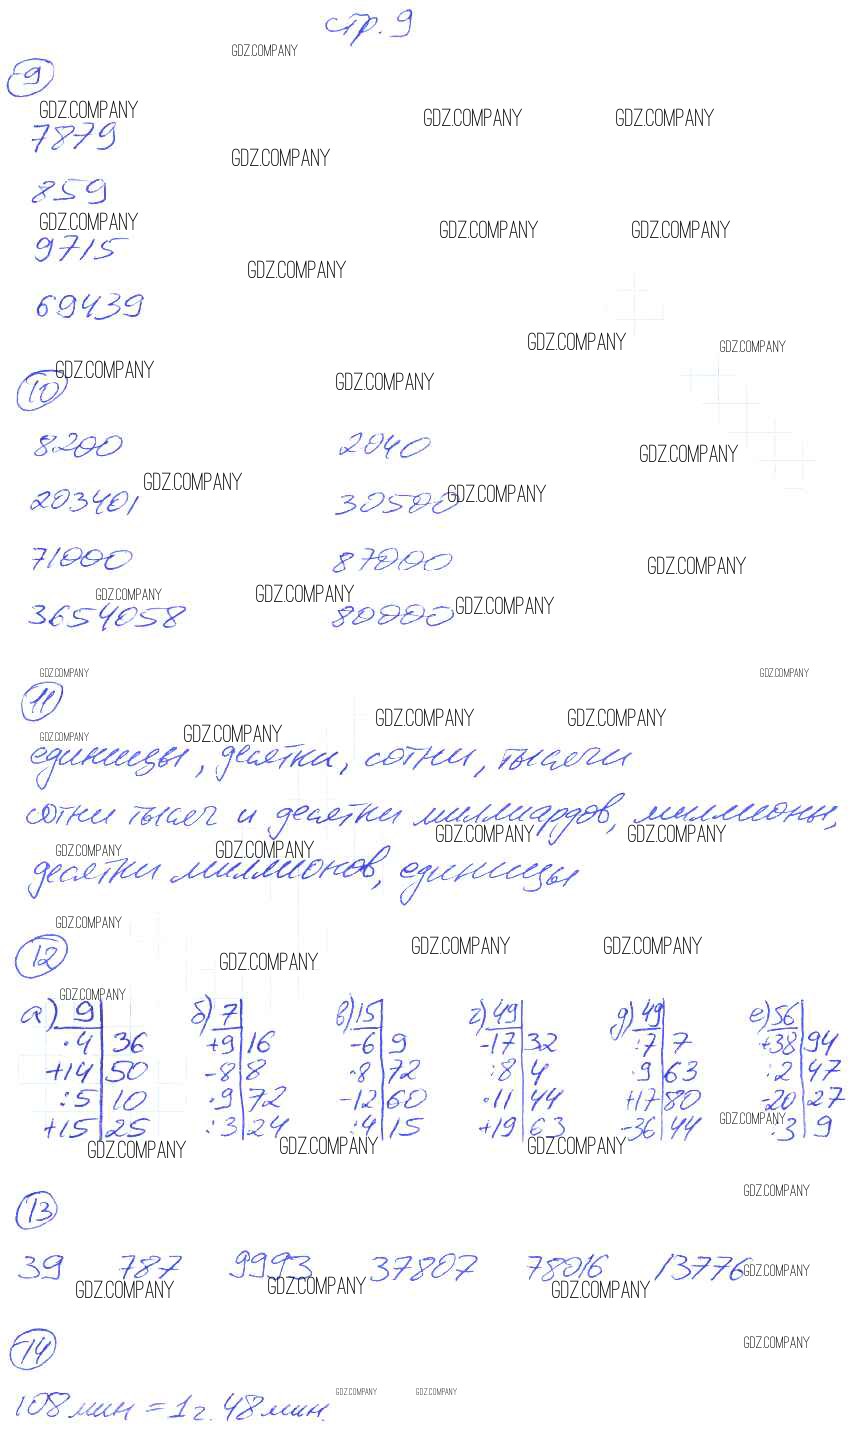 стр. 9
GDZ.COMPANY
9
GDZ.COMPANY GDZ.COMPANY GDZ.COMPANY
7879
GDZ.COMPANY
859
GDZ.COMPANY GDZ.COMPANY GDZ.COMPANY
9715
GDZ.COMPANY
69439
GDZ.COMPANY GDZ.COMPANY
GDZ.COMPANY GDZ.COMPANY
10
8200 2040
GDZ.COMPANY
GDZ.COMPANY GDZ.COMPANY
203401 30500
71000 87000
GDZ.COMPANY
GDZ.COMPANY GDZ.COMPANY GDZ.COMPANY
3654058 80000
GDZ.COMPANY GDZ.COMPANY
11
GDZ.COMPANY GDZ.COMPANY
GDZ.COMPANY GDZ.COMPANY
единицы, десятки, сотни, тысячи
сотни тысяч и десятки миллиардов, миллионы,
GDZ.COMPANY GDZ.COMPANY
GDZ.COMPANY GDZ.COMPANY
десятки миллионов, единицы
GDZ.COMPANY
12
GDZ.COMPANY GDZ.COMPANY GDZ.COMPANY
GDZ.COMPANY
а) 9 б) 7 в) 15 г) 49 д) 49 е) 56
·4 36 +9 16 -6 9 -17 32 :7 7 +38 94
+14 50 -8 8 ·8 72 :8 4 ·9 63 :2 47
:5 10 ·9 72 -12 60 ·11 44 +17 80 -20 27
GDZ.COMPANY
+15 25 :3 24 :4 15 +19 63 -36 44 :3 9
GDZ.COMPANY GDZ.COMPANY GDZ.COMPANY
GDZ.COMPANY
13
39 787 9993 37807 78016 13776
GDZ.COMPANY
GDZ.COMPANY GDZ.COMPANY GDZ.COMPANY
14
GDZ.COMPANY
GDZ.COMPANY GDZ.COMPANY
108 мин = 1 г. 48 мин.